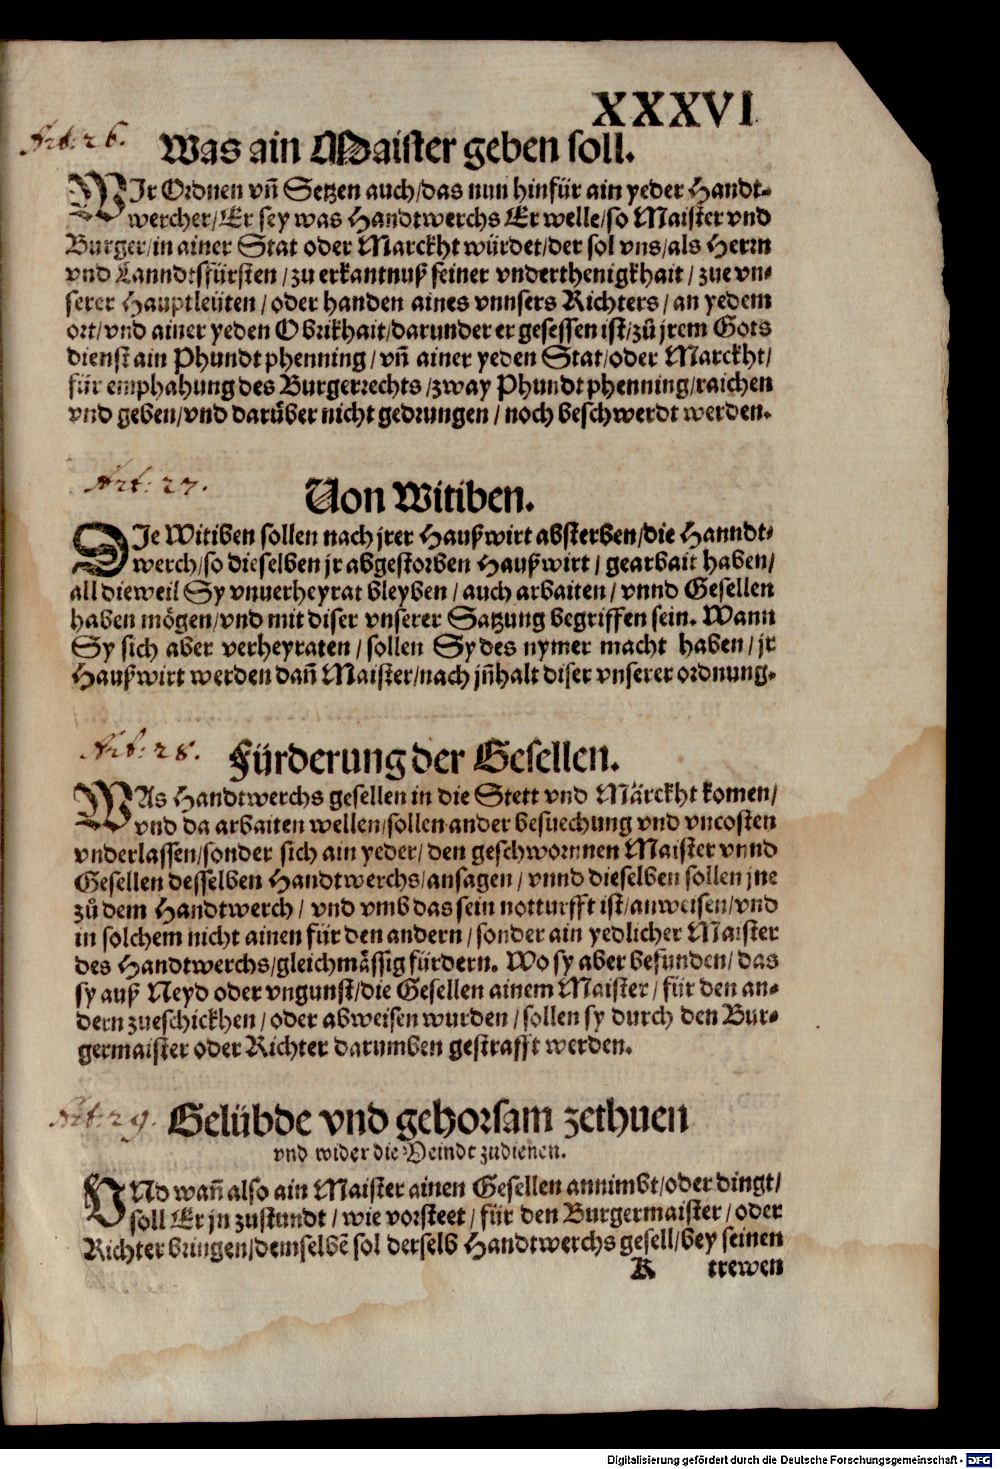 XXXVI
Art: 26.
Was ain Maister geben soll.
WIr Ordnen vñ Setzen auch/das nun hinfür ain yeder Handt-
wercher/Er sey was Handtwerchs Er welle/so Maister vnd
Burger/in ainer Stat oder Marckht würdet/der sol vns/als Herrn
vnd Lanndtsfürsten/zu erkantnuß seiner vnderthenigkhait/zue vn-
serer Hauptleüten/oder handen aines vnnsers Richters/an yedem
ort/vnd ainer yeden Obrikhait/darunder er gesessen ist/zů jrem Gots
dienst ain Phundt phenning/vñ ainer yeden Stat/oder Marckht/
für emphahung des Burgerrechts/zway Phundt phenning/raichen
vnd geben/vnd darůber nicht gedrungen/noch beschwerdt werden.
Art: 27.
Von Witiben.
DIe Witiben sollen nach jrer Haußwirt absterben/die Hanndt-
werch/so dieselben jr abgestorben Haußwirt/gearbait haben/
all dieweil Sy vnuerheyrat bleyben/auch arbaiten/vnnd Gesellen
haben mögen/vnd mit diser vnserer Satzung begriffen sein. Wann
Sy sich aber verheyraten/sollen Sy des nymer macht haben/jr
Haußwirt werden dañ Maister/nach jñhalt diser vnserer ordnung.
Art: 28.
Fürderung der Gesellen.
WAs Handtwerchs gesellen in die Stett vnd Märckht komen/
vnd da arbaiten wellen/sollen ander besuechung vnd vncosten
vnderlassen/sonder sich ain yeder/den geschwornnen Maister vnnd
Gesellen desselben Handtwerchs/ansagen/vnnd dieselben sollen jne
zů dem Handtwerch/vnd vmb das sein notturfft ist/anweisen/vnd
in solchem nicht ainen für den andern/sonder ain yedlicher Maister
des Handtwerchs/gleichmässig fürdern. Wo sy aber befunden/das
sy auß Neyd oder vngunst/die Gesellen ainem Maister/für den an-
dern zueschickhen/oder abweisen wurden/sollen sy durch den Bur-
germaister oder Richter darumben gestrafft werden.
Art: 29.
Gelübde vnd gehorsam zethuen
vnd wider die Veindt zudienen.
VNd wañ also ain Maister ainen Gesellen annimbt/oder dingt/
soll Er jn zustundt/wie vorsteet/für den Burgermaister/oder
Richter bringen/demselbē sol derselb Handtwerchs gesell/bey seinen
K trewen
Digitalisierung gefördert durch die Deutsche Forschungsgemeinschaft - DFG